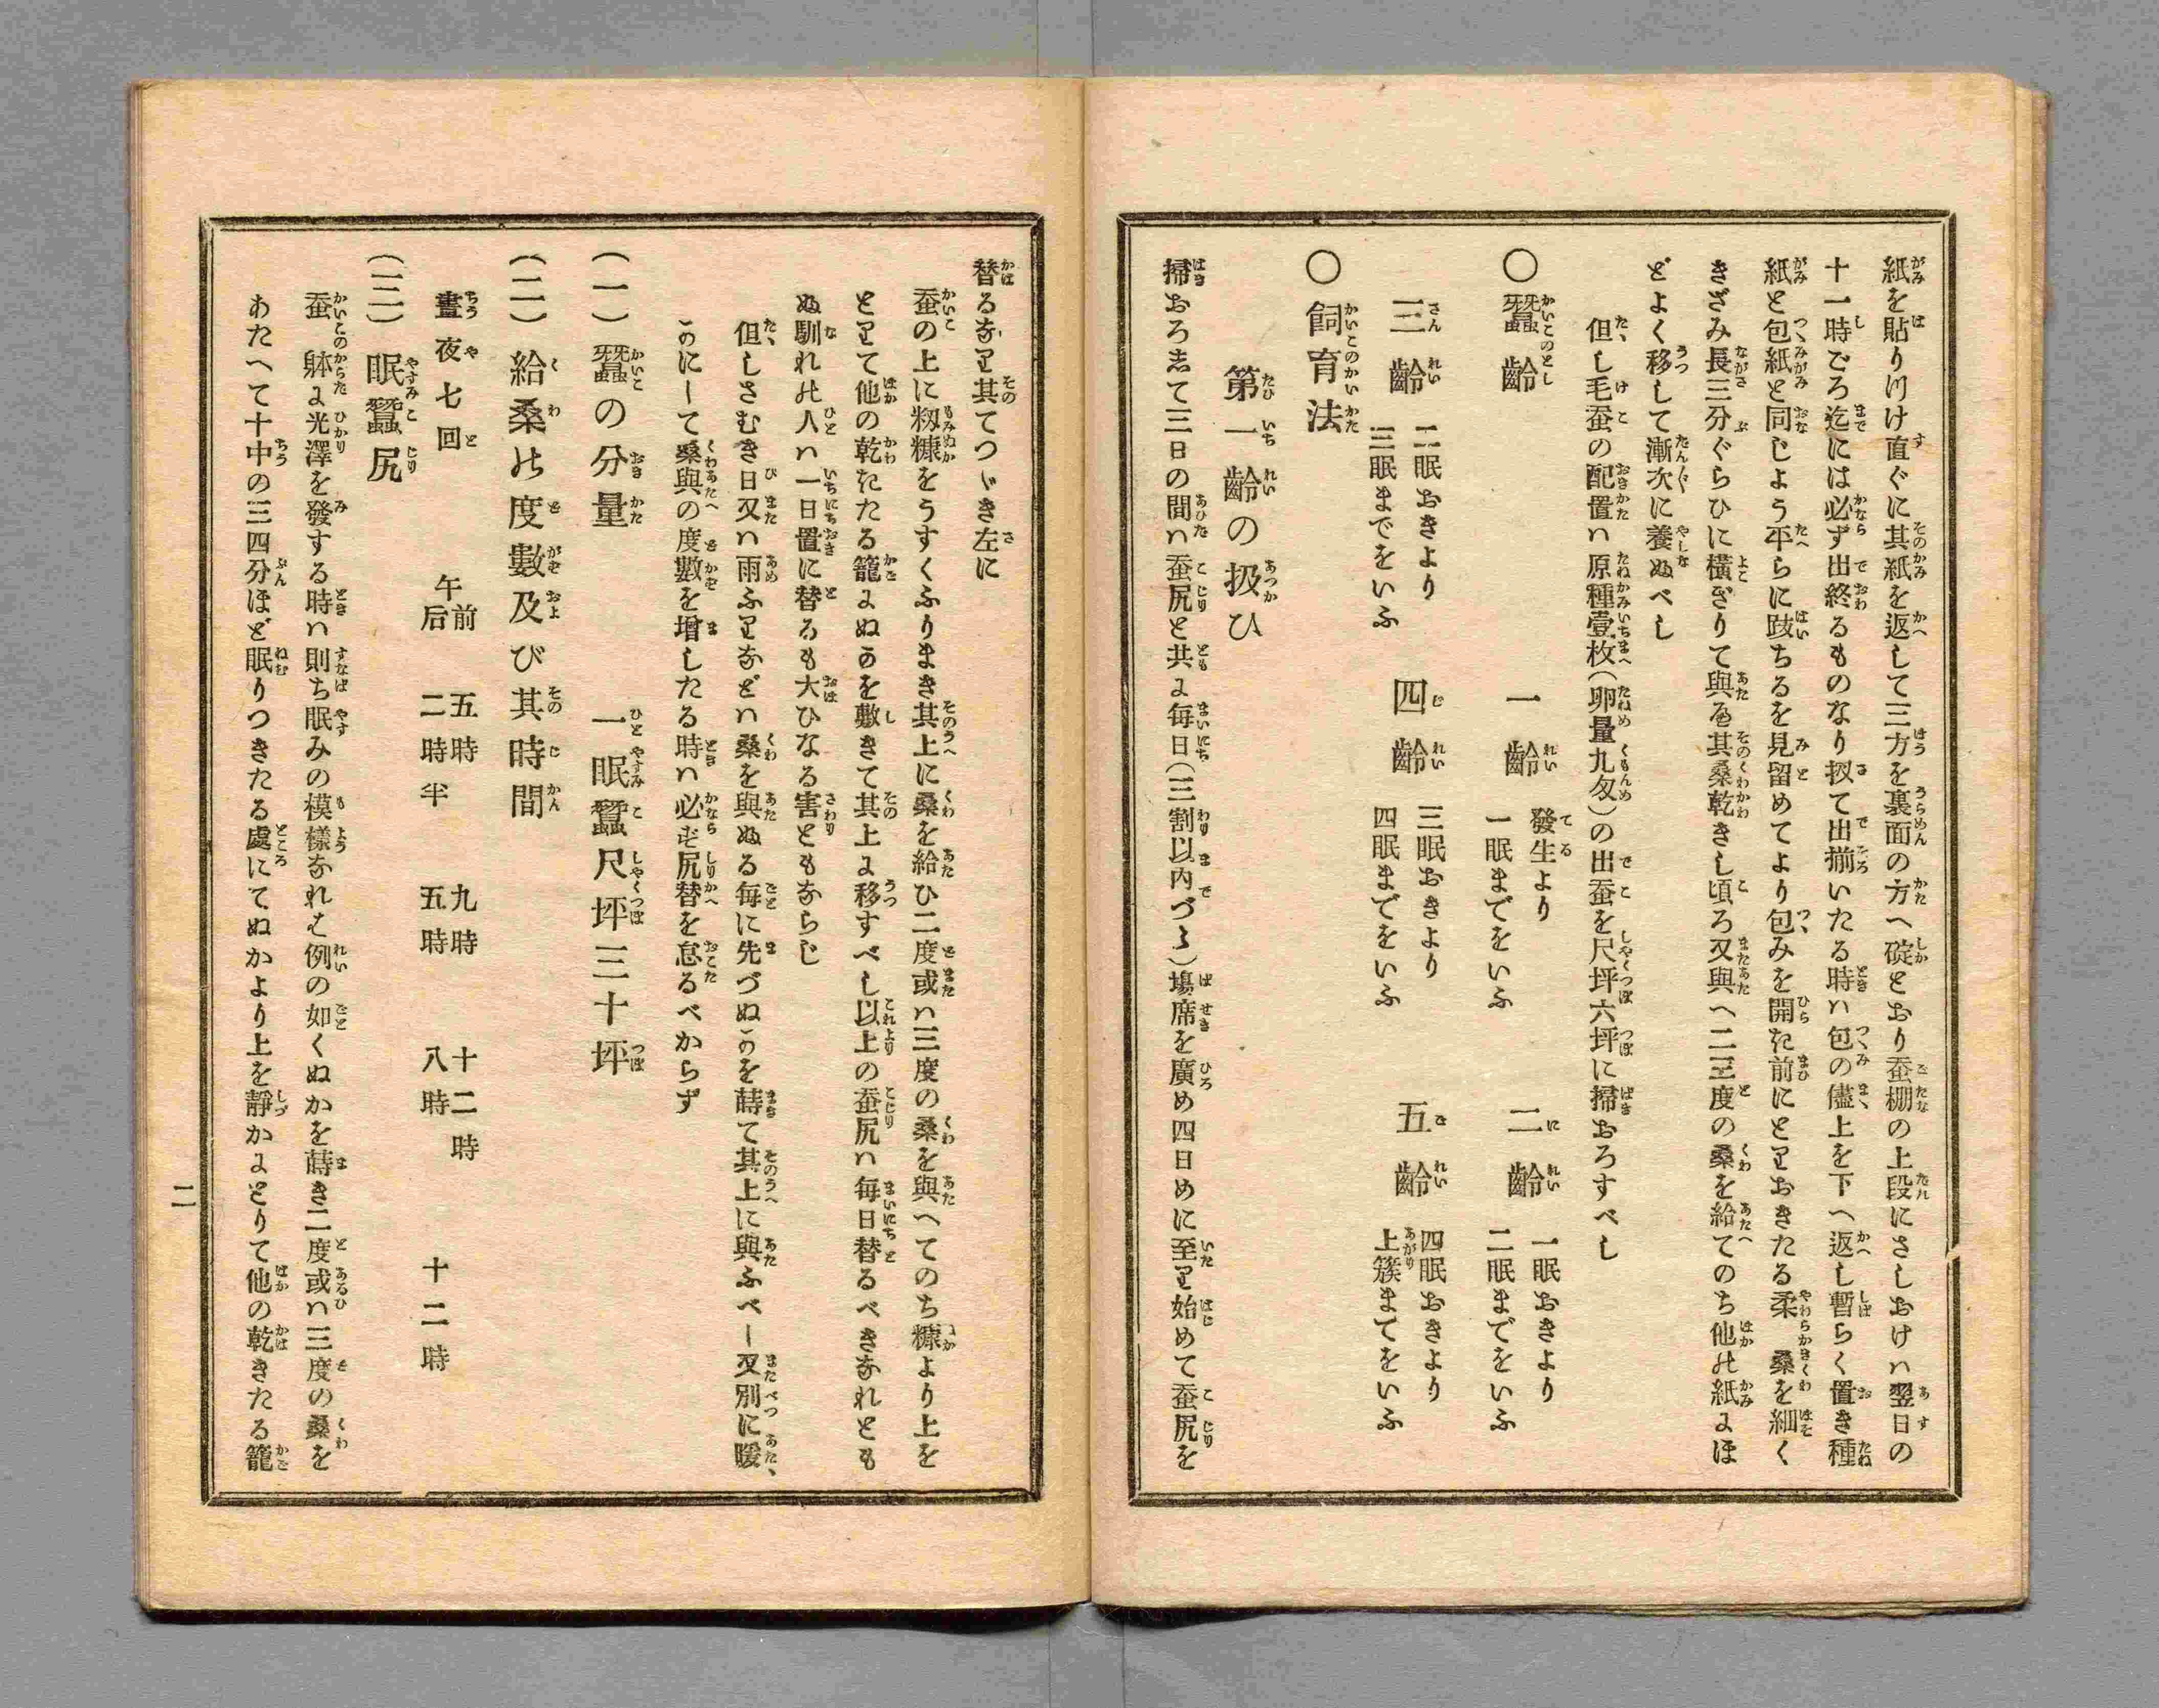 紙を貼り付け直ぐに其紙を返して三方を裏面の方へ碇とおり蚕棚の上段にさしおけハ翌日の
十一時ごろ迄には必ず出終るものなり扨て出揃いたる時ハ包の儘上を下へ返し暫らく置き種
紙と包紙と同じよう平らに跂ちるを見留めてより包みを開き前にとりおきたる柔桑を細く
きざみ長三分ぐらひに横ぎりて與る其桑乾きし頃ろ又與へ二三度の桑を給てのち他の紙にほ
どよく移して漸次に養ぬべし
但し毛蚕の配置ハ原種壹枚(卵量九匁)の出蚕を尺坪六坪に掃おろすべし
〇蠶齡
一齡 發生より一眠までをいふ
二齡 一眠おきより二眠までをいふ
三齡 二眠おきより三眠までをいふ
四齡 三眠おきより四眠までをいふ
五齡 四眠おきより上簇まてをいふ
〇飼育法
第一齡の扱ひ
掃おろして三日の間ハ蚕尻と共に毎日(三割以内づゝ)塲席を廣め四日めに至り始めて蚕尻を
替るなり其てつゞき左に
蚕の上に籾糠をうすくふりまき其上に桑を給ひ二度或ハ三度の桑を與へてのち糠より上を
とりて他の乾きたる籠にぬかを敷きて其上に移すべし以上の蚕尻ハ毎日替るべきなれとも
ぬ馴れの人ハ一日置に替るも大ひなる害ともならじ
但しさむき日又ハ雨ふりなどハ桑を與ぬる毎に先づぬかを蒔て其上に與ふべし又別に暖
かにして桑與の度數を增したる時ハ必ず尻替を怠るべからず
(一)蠶の分量 一眠蠶尺坪三十坪
(二)給桑の度數及び其時間
晝夜七回 午前 五時 九時 十二時
午后 二時半 五時 八時 十二時
(三)眠蠶尻
蚕躰に光澤を發する時ハ則ち眠みの模樣なれば例の如くぬかを蒔き二度或ハ三度の桑を
あたへて十中の三四分ほど眠りつきたる處にてぬかより上を靜かにとりて他の乾きたる籠
二